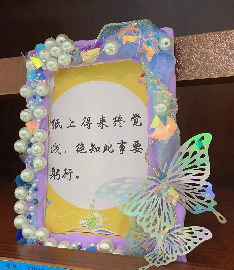 纸上得来终觉
浅，绝知此事要
躬行。